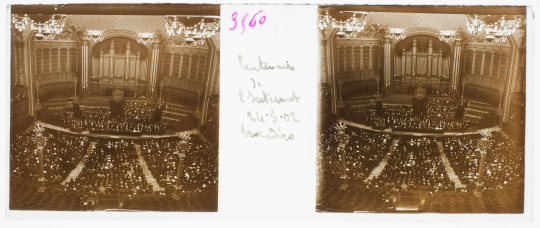 3960
Centenaire
de
l'Internat
24.5.02
Trocadéro